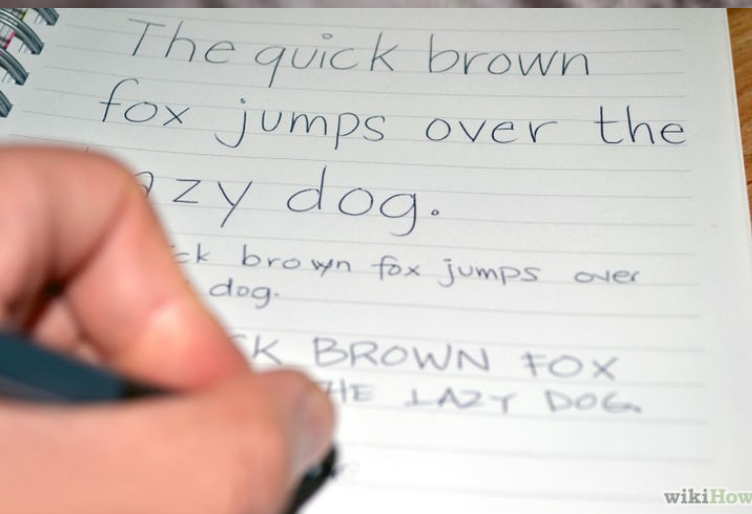 The quick brown
fox jumps over the
azy dog.
ck brown fox jumps over
dog.
CK BROWN FOX
THE LAZY DOG.
wikiHow